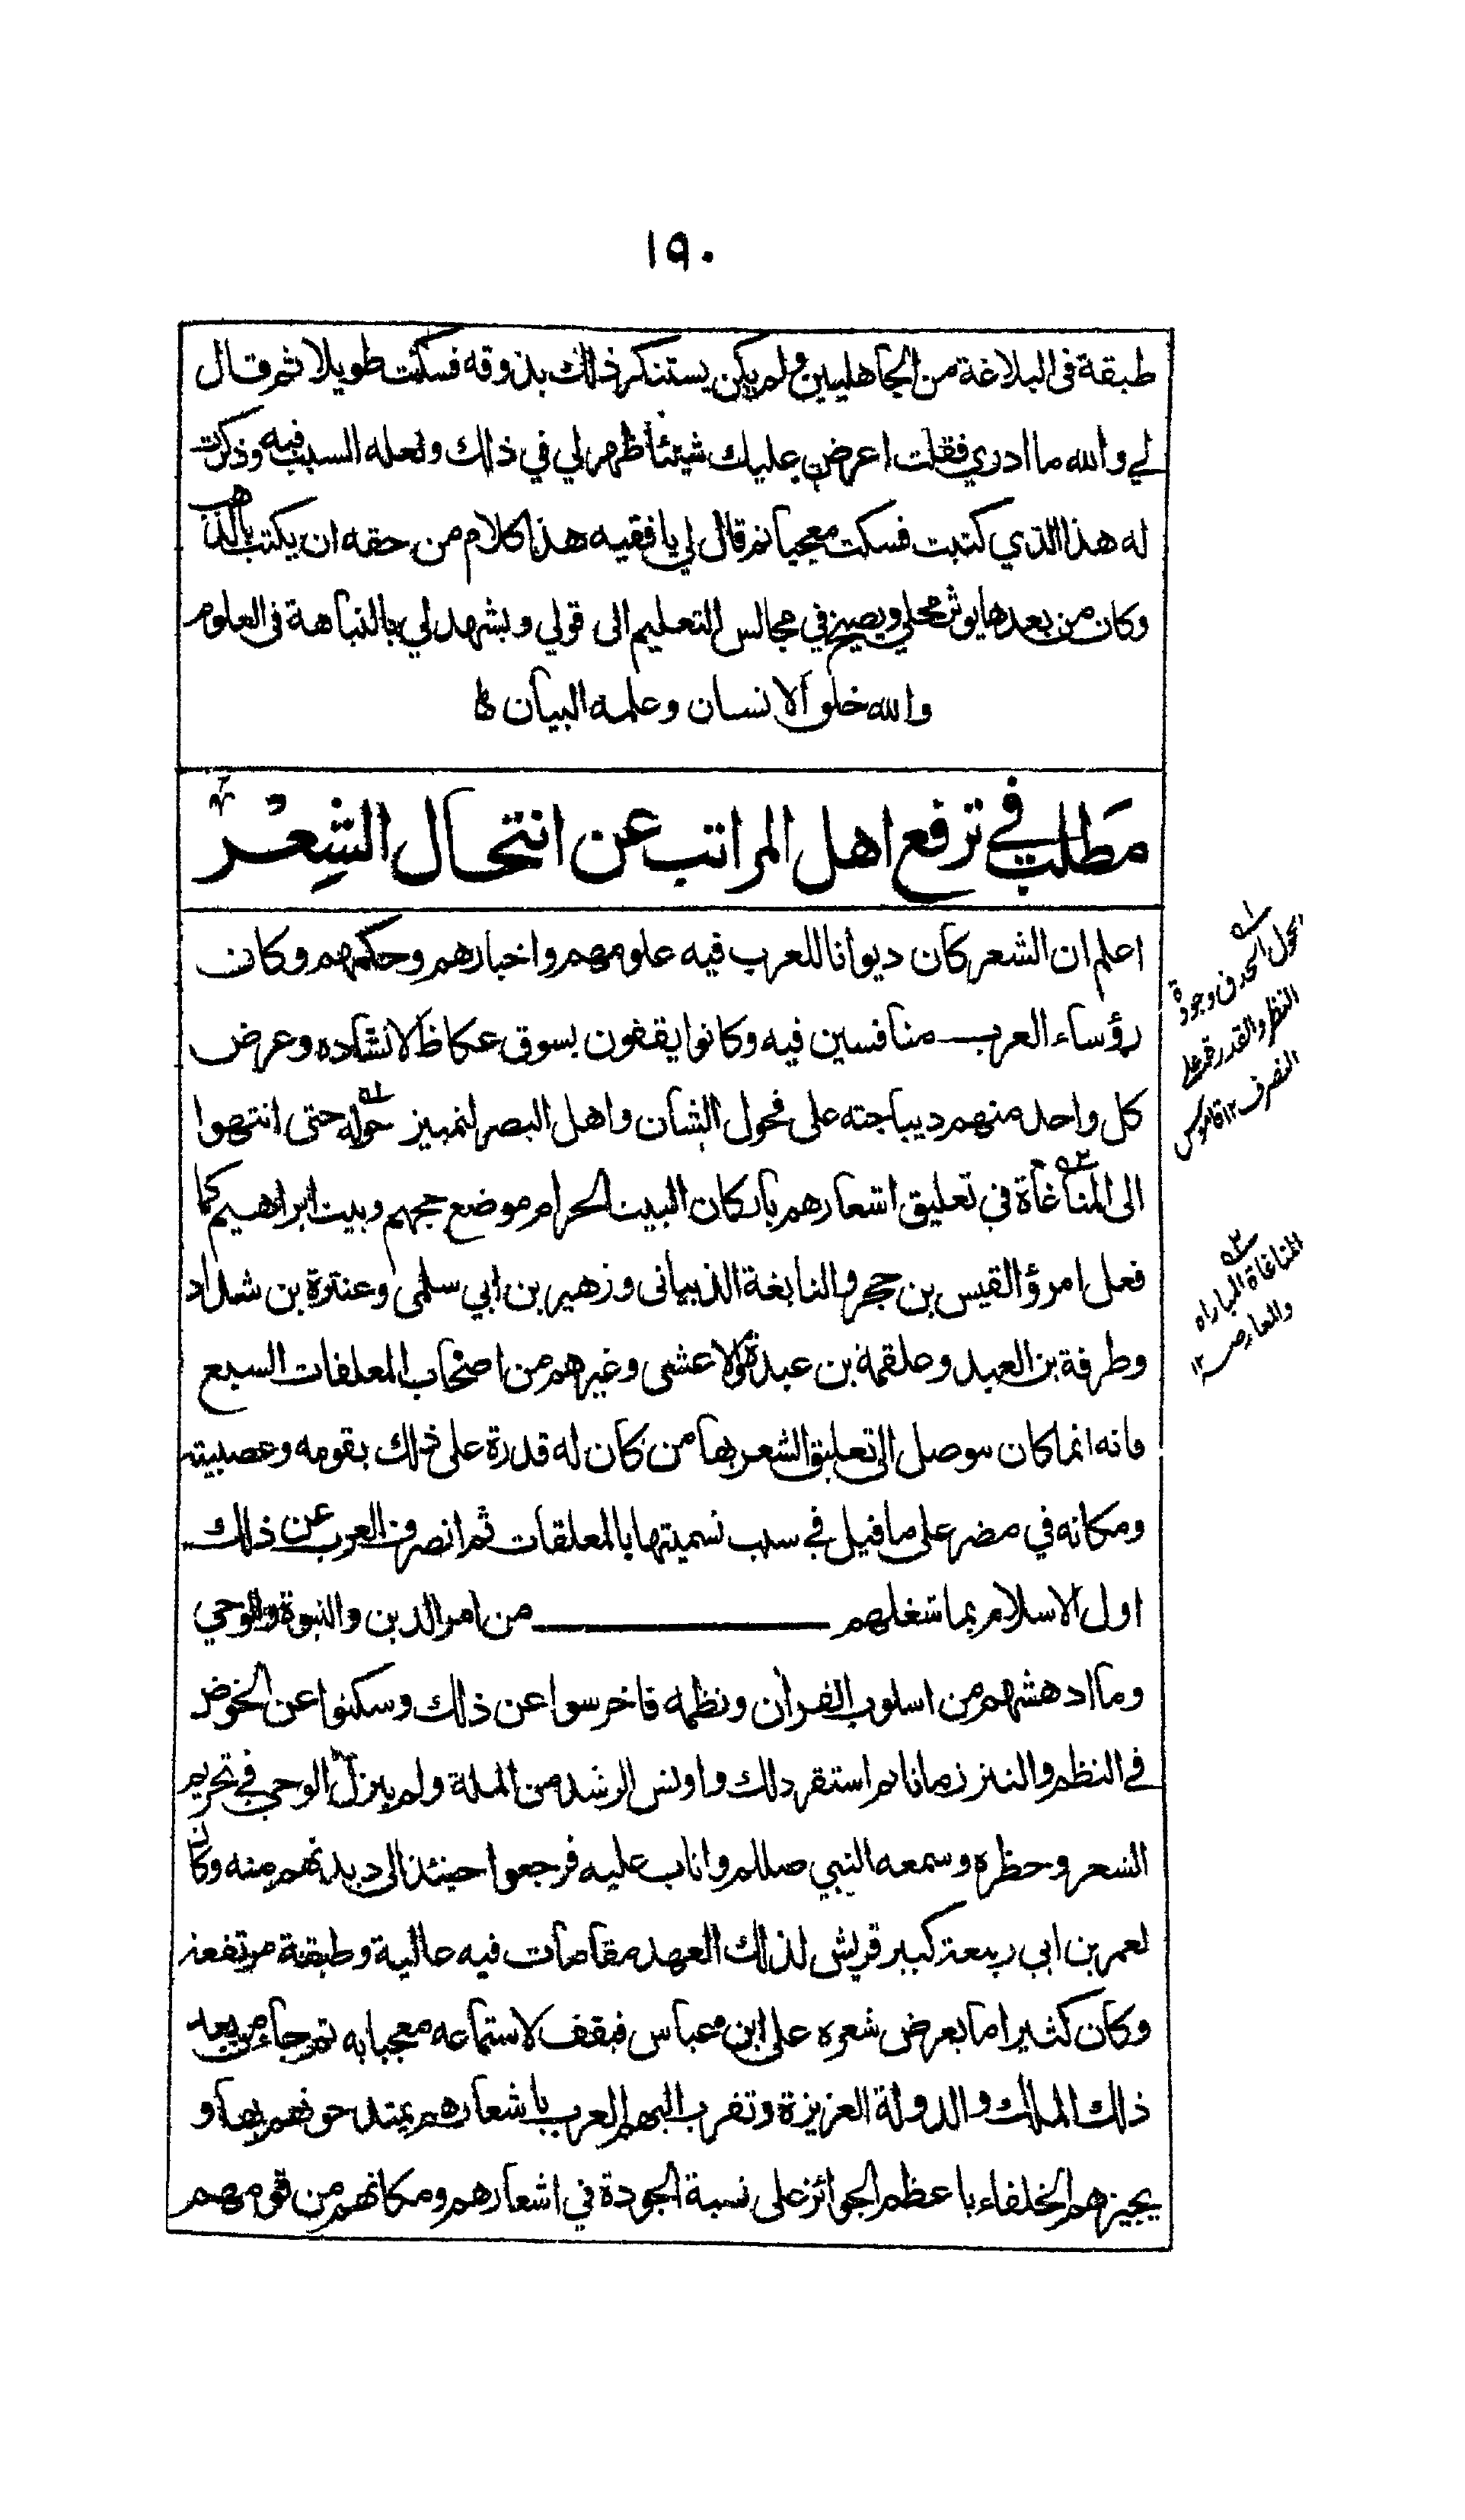 ١٩٠
طبقة في البلاغة من الجاهليين ولم يكن يستنكر ذلك بذوقه فسكت طويلا ثم قال
لي والله ما ادري فقلت اعرض عليك شيئا ظهر لي في ذلك ولعله السبب فيه وذكرت
له هذا الذي كتبت فسكت معجبا ثم قال لي يا فقيه هذا كلام من حقه ان يكتب بالذهب
وكان من بعدها يوثر محلي ويصيخ في مجالس التعليم الى قولي ويشهد لي بالنباهة في العلوم
والله خلق الانسان وعلمه البيان
مطلب في ترفع اهل المراتب عن انتحال الشعر
اعلم ان الشعر كان ديوانا للعرب فيه علومهم واخبارهم وحكمهم وكان
رؤساء العرب منافسين فيه وكانوا يقفون بسوق عكاظ لانشاده وعرض
كل واحد منهم ديباجته على فحول الشان واهل البصر لتمييز حوله حتى انتهوا
الى المناغاة في تعليق اشعارهم باركان البيت الحرام موضع حجهم وبيت ابراهيم كما
فعل امرؤ القيس بن حجر والنابغة الذبياني وزهير بن ابي سلمى وعنترة بن شداد
وطرفة بن العبد وعلقمة بن عبدة والاعشى وغيرهم من اصحاب المعلقات السبع
فانه انما كان يتوصل الى تعليق الشعر بها من كان له قدرة على ذلك بقومه وعصبيته
ومكانه في مضر على ما قيل في سبب تسميتها بالمعلقات ثم انصرف العرب عن ذلك
اول الاسلام بما شغلهم من امر الدين والنبوة والوحي
وما ادهشهم من اسلوب القران ونظمه فاخرسوا عن ذلك وسكتوا عن الخوض
في النظم والنثر زمانا ثم استقر ذلك واونس الرشد من الملة ولم ينزل الوحي في تحريم
الشعر وحظره وسمعه النبي صللم واثاب عليه فرجعوا حينئذ الى ديدنهم منه وكان
لعمر بن ابي ربيعة كبير قريش لذلك العهد مقامات فيه عالية وطبقة مرتفعة
وكان كثيرا ما يعرض شعره على ابن عباس فيقف لاستماعه معجبا به ثم جاء من بعد
ذلك الملك والدولة العزيزة وتقرب اليهم العرب باشعارهم يمتدحونهم بها و
يجيزهم الخلفاء باعظم الجوائز على نسبة الجودة في اشعارهم ومكانهم من قومهم
الحول الحذق وجودة
النظر والقدرة على
التصرف ١٢ قاموس
المناغاة المباراه
والمعارضة ١٢